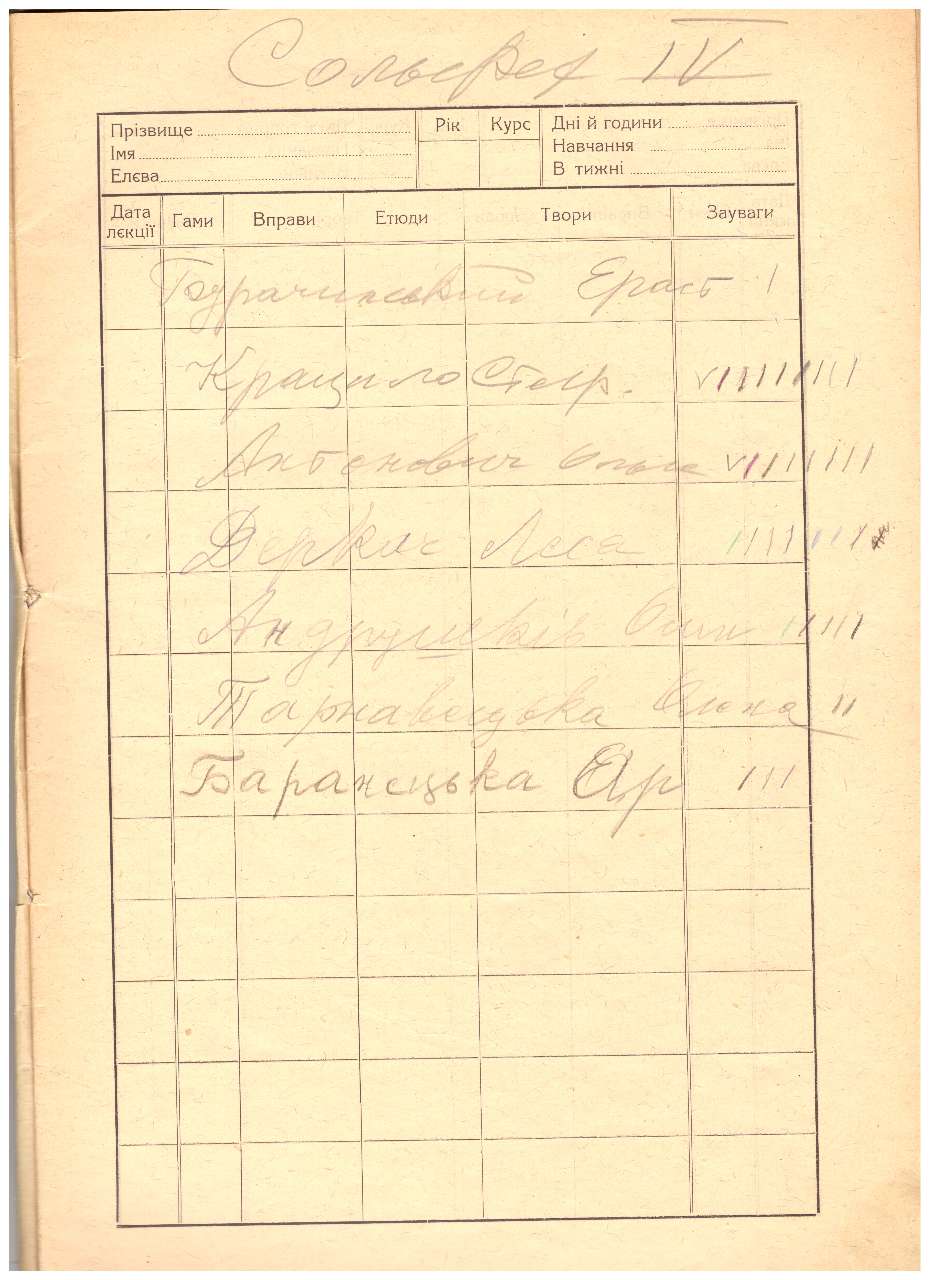 Сольфеж IV
Прізвище Рік Курс Дні й години
Імя Навчання
Елєва В тижні
Дата лєкції Гами Вправи Етюди Твори Зауваги
Бурачинський Ераст I
Крацило Стеф. V I I I I I I I I
Антонович Ольга V I I I I I I I I
Деркач Леся I I I I I I I
Андрушків I I I I I
Тарнавецька I I
Баранецька Яр I I I